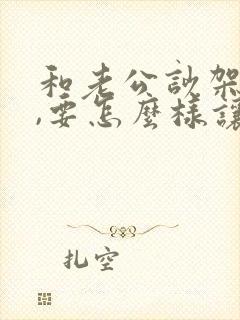 和老公訟架
,要怎麼樣讓
扎空